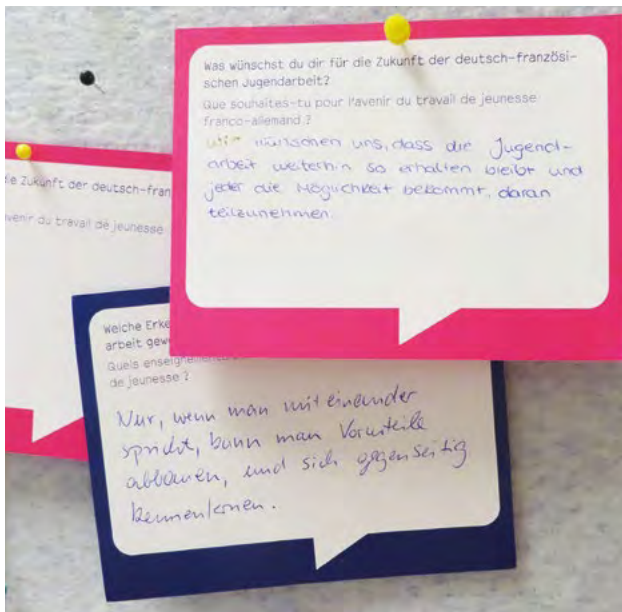 Was wünschst du dir für die Zukunft der deutsch-französi-
schen Jugendarbeit?
Que souhaites-tu pour l'avenir du travail de jeunesse
franco-allemand ?
wir wünschen uns, dass die Jugend-
arbeit weiterhin so erhalten bleibt und
jeder die Möglichkeit bekommt, daran
teilzunehmen.
die Zukunft der deutsch-fran
venir du travail de jeunesse
Welche Erke
arbeit gew
Quels enseignements
de jeunesse ?
Nur, wenn man miteinander
spricht, kann man Vorurteile
abbauen, und sich gegenseitig
kennenlernen.